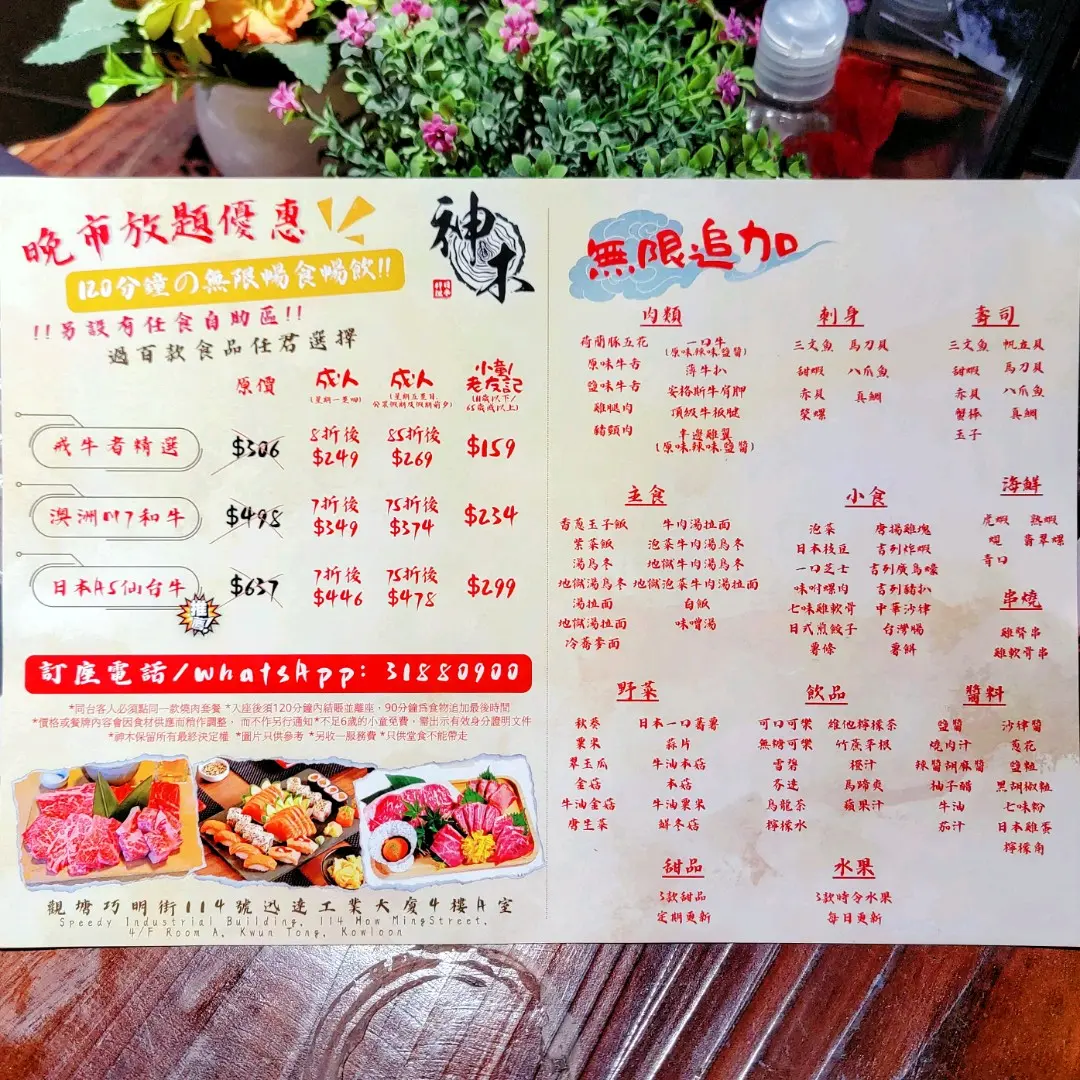 晚市放題優惠
神木
120分鐘の無限暢食暢飲!!
!!另設有任食自助區!!
過百款食品任君選擇
原價
成人
(星期一至四)
成人
(星期五至日
公眾假期及假期前夕)
小童/
老友記
(11歲以下/
65歲或以上)
戒牛者精選 $306 8折後 $249 85折後 $269 $159
澳洲M7和牛 $498 7折後 $349 75折後 $374 $234
日本A5仙台牛 $637 7折後 $446 75折後 $478 $299
推薦!
訂座電話/WhatsApp: 31880900
*同台客人必須點同一款燒肉套餐 *入座後須120分鐘內結賬並離座，90分鐘為食物追加最後時間
*價格或餐牌內容會因食材供應而稍作調整， 而不作另行通知 *不足6歲的小童免費，需出示有效身分證明文件
*神木保留所有最終決定權 *圖片只供參考 *另收一服務費 *只供堂食不能帶走
觀塘巧明街114號迅達工業大廈4樓A室
Speedy Industrial Building, 114 How MingStreet,
4/F Room A, Kwun Tong, Kowloon
無限追加
肉類
荷蘭豚五花 一口牛
(原味.辣味.鹽醬)
原味牛舌 薄牛扒
鹽味牛舌 安格斯牛肩胛
雞腿肉 頂級牛板腱
豬頸肉 半邊雞翼
(原味.辣味.鹽醬)
刺身
三文魚 馬刀貝
甜蝦 八爪魚
赤貝 真鯛
螺
壽司
三文魚 帆立貝
甜蝦 馬刀貝
赤貝 八爪魚
蟹棒 真鯛
玉子
主食
香蔥玉子飯 牛肉湯拉面
紫菜飯 泡菜牛肉湯烏冬
湯烏冬 地獄牛肉湯烏冬
地獄湯烏冬 地獄泡菜牛肉湯拉面
湯拉面 白飯
地獄湯拉面 味噌湯
冷蕎麥面
小食
泡菜 唐揚雞塊
日本枝豆 吉列炸蝦
一口芝士 吉列廣島蠔
味付螺肉 吉列豬扒
七味雞軟骨 中華沙律
日式煎餃子 台灣腸
薯條 薯餅
海鮮
虎蝦 熟蝦
蜆 翡翠螺
青口
串燒
雞腎串
雞軟骨串
野菜
秋葵 日本一口蕃薯
粟米 蒜片
翠玉瓜 牛油本菇
金菇 本菇
牛油金菇 牛油粟米
唐生菜 鮮冬菇
飲品
可口可樂 維他檸檬茶
無糖可樂 竹蔗茅根
雪碧 橙汁
芬達 馬蹄爽
烏龍茶 蘋果汁
檸檬水
醬料
鹽醬 沙律醬
燒肉汁 蔥花
辣醬胡麻醬 鹽粒
柚子醋 黑胡椒粒
牛油 七味粉
茄汁 日本雞蛋
檸檬角
甜品
3款甜品
定期更新
水果
3款時令水果
每日更新